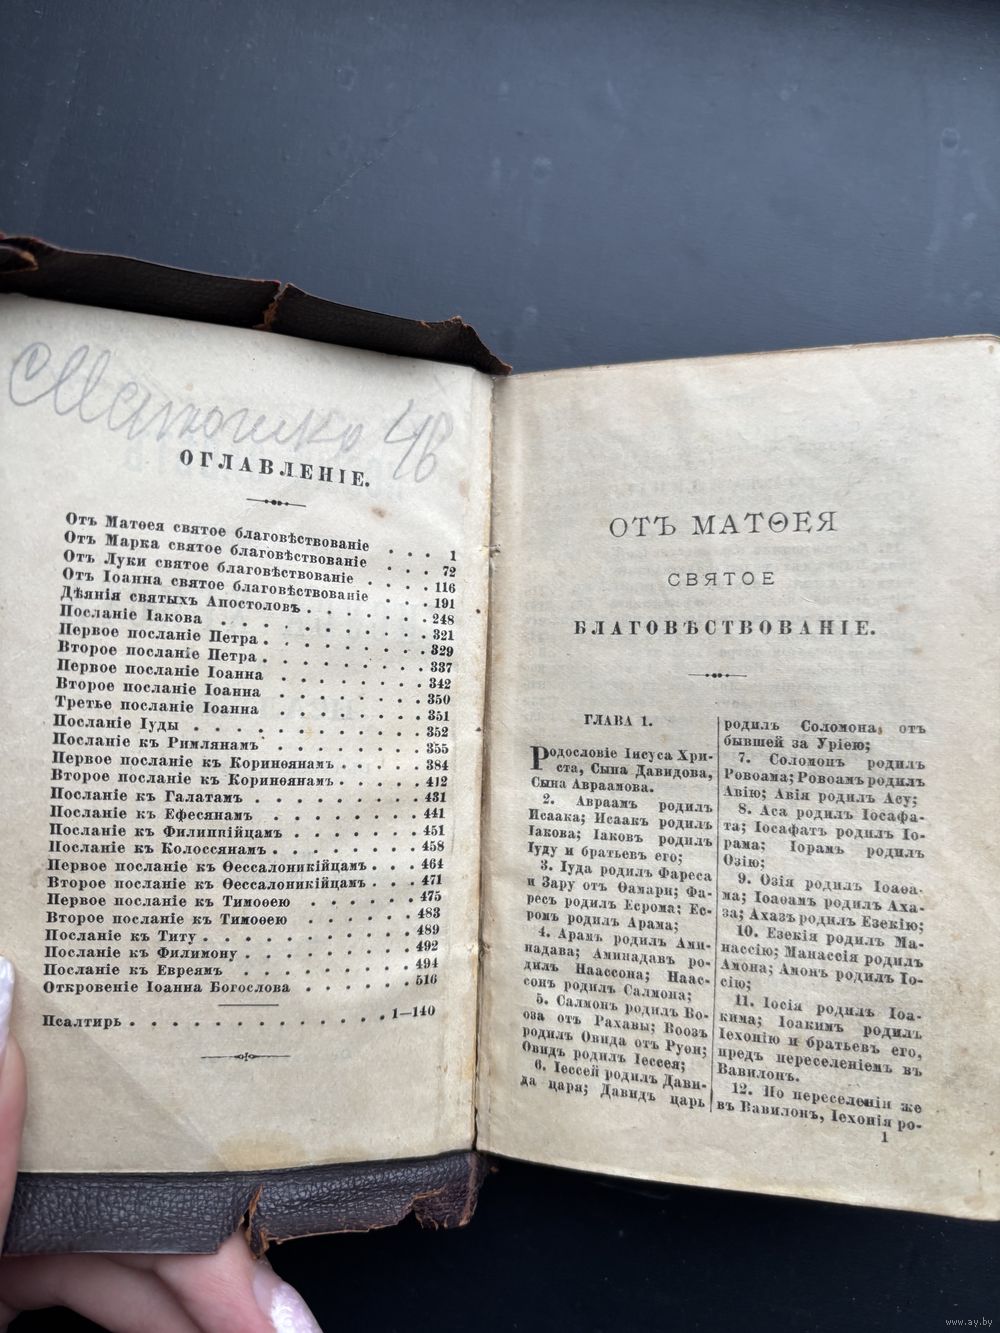 ОГЛАВЛЕНІЕ.
Отъ Матѳея святое благовѣствованіе . . . 1
Отъ Марка святое благовѣствованіе . . . 72
Отъ Луки святое благовѣствованіе . . . . 116
Отъ Іоанна святое благовѣствованіе . . . 191
Дѣянія святыхъ Апостоловъ . . . . . . . 248
Посланіе Іакова . . . . . . . . . . . 321
Первое посланіе Петра . . . . . . . . . 329
Второе посланіе Петра . . . . . . . . . 337
Первое посланіе Іоанна . . . . . . . . 342
Второе посланіе Іоанна . . . . . . . . 350
Третье посланіе Іоанна . . . . . . . . 351
Посланіе Іуды . . . . . . . . . . . . 352
Посланіе къ Римлянамъ . . . . . . . . 355
Первое посланіе къ Коринѳянамъ . . . . . 384
Второе посланіе къ Коринѳянамъ . . . . . 412
Посланіе къ Галатамъ . . . . . . . . . 431
Посланіе къ Ефесянамъ . . . . . . . . 441
Посланіе къ Филиппійцамъ . . . . . . . 451
Посланіе къ Колоссянамъ . . . . . . . . 458
Первое посланіе къ Ѳессалоникійцамъ . . . 464
Второе посланіе къ Ѳессалоникійцамъ . . . 471
Первое посланіе къ Тимоѳею . . . . . . 475
Второе посланіе къ Тимоѳею . . . . . . 483
Посланіе къ Титу . . . . . . . . . . . 489
Посланіе къ Филимону . . . . . . . . . 492
Посланіе къ Евреямъ . . . . . . . . . 494
Откровеніе Іоанна Богослова . . . . . . 516
Псалтирь . . . . . . . . . . . . . . 1—140
ОТЪ МАТѲЕЯ
СВЯТОЕ
БЛАГОВѢСТВОВАНІЕ.
ГЛАВА 1.
Родословіе Іисуса Хри-
ста, Сына Давидова,
Сына Авраамова.
2. Авраамъ родилъ
Исаака; Исаакъ родилъ
Іакова; Іаковъ родилъ
Іуду и братьевъ его;
3. Іуда родилъ Фареса
и Зару отъ Ѳамари; Фа-
ресъ родилъ Есрома; Ес-
ромъ родилъ Арама;
4. Арамъ родилъ Ами-
надава; Аминадавъ ро-
дилъ Наассона; Наас-
сонъ родилъ Салмона;
5. Салмонъ родилъ Во-
оза отъ Рахавы; Воозъ
родилъ Овида отъ Руѳи;
Овидъ родилъ Іессея;
6. Іессей родилъ Дави-
да царя; Давидъ царь
родилъ Соломона, отъ
бывшей за Уріею;
7. Соломонъ родилъ
Ровоама; Ровоамъ родилъ
Авію; Авія родилъ Асу;
8. Аса родилъ Іосафа-
та; Іосафатъ родилъ Іо-
рама; Іорамъ родилъ
Озію;
9. Озія родилъ Іоаѳа-
ма; Іоаѳамъ родилъ Аха-
за; Ахазъ родилъ Езекію;
10. Езекія родилъ Ма-
нассію; Манассія родилъ
Амона; Амонъ родилъ Іо-
сію;
11. Іосія родилъ Іоа-
кима; Іоакимъ родилъ
Іехонію и братьевъ его,
предъ переселеніемъ въ
Вавилонъ.
12. По переселеніи же
въ Вавилонъ, Іехонія ро-
1
www.ay.by